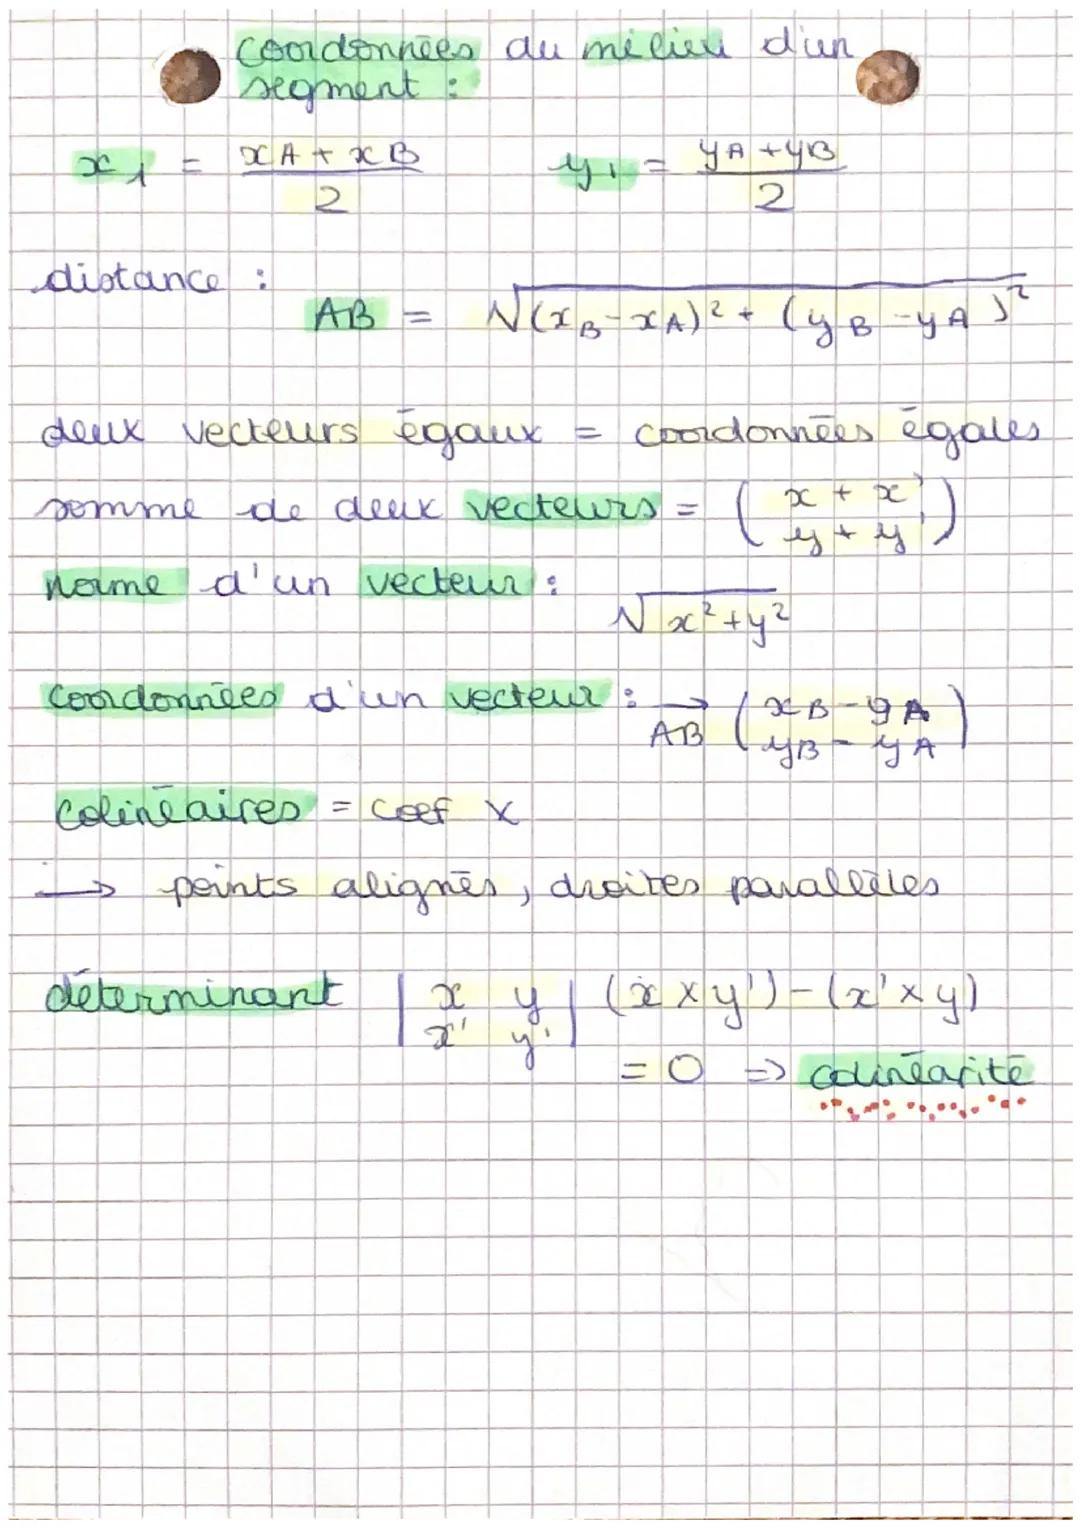 coordonnées du milieu d'un
segment :
x₁ = (xA + xB)/2   y₁ = (yA + yB)/2
distance :
AB = √(xB - xA)² + (yB - yA)²
deux vecteurs égaux = coordonnées égales
somme de deux vecteurs = (x + x' / y + y')
norme d'un vecteur :
√x² + y²
coordonnées d'un vecteur : AB→ (xB - yA / yB - yA)
colinéaires = coef x
→ points alignés, droites parallèles
déterminant |x y / x' y'| (x × y') - (x' × y)
= 0 => colinéarité